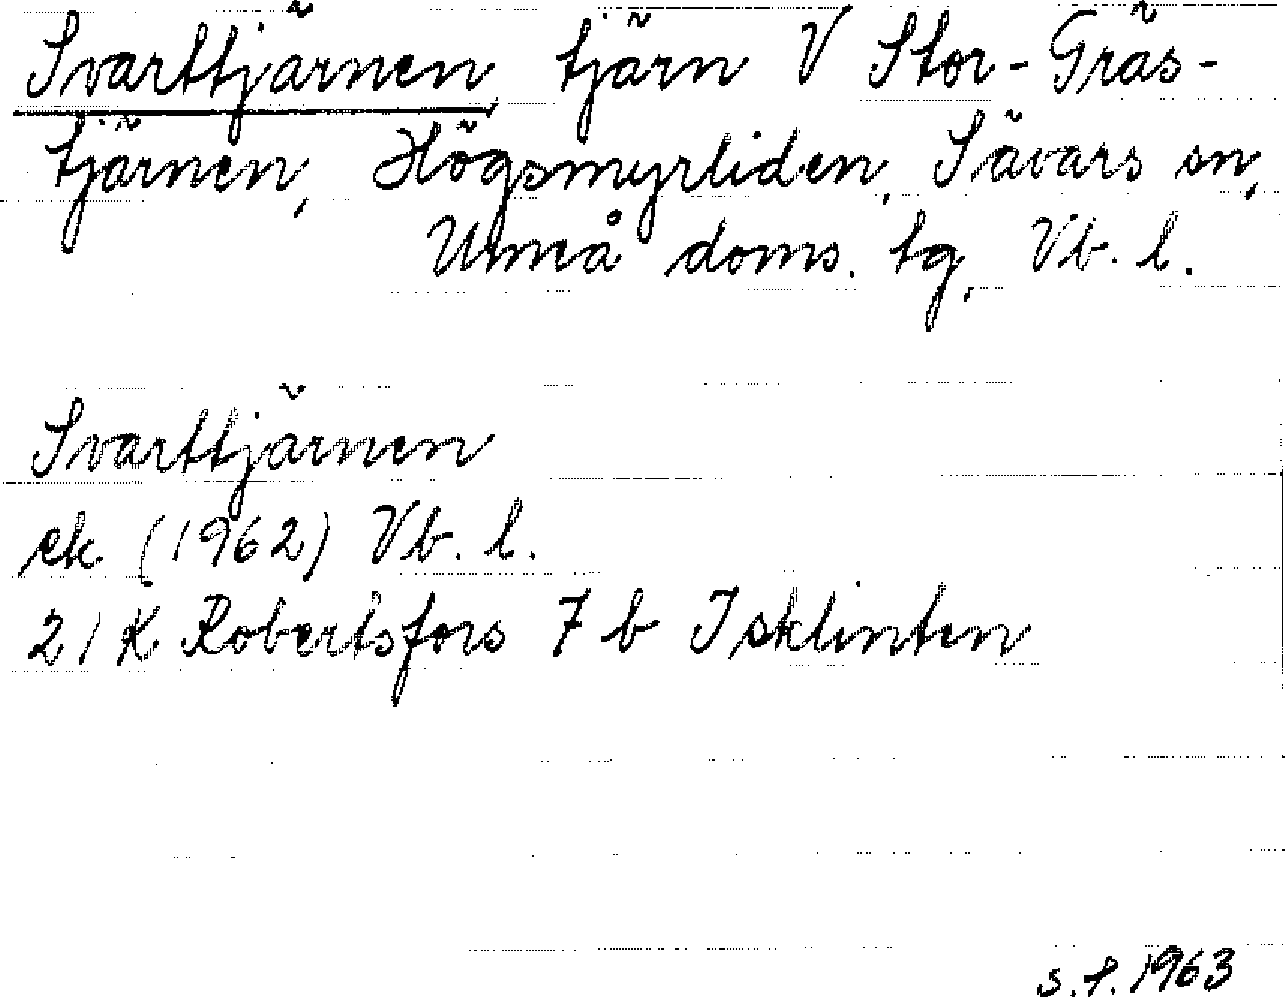 Svarttjärnen, tjärn V Stor-Gräs-
tjärnen, Högsmyrliden, Sävars sn,
Umeå doms. tg, Vb. l.
Svarttjärnen
ek. (1962) Vb. l.
21 K Robertsfors 7 b Isklinten
s.f. 1963